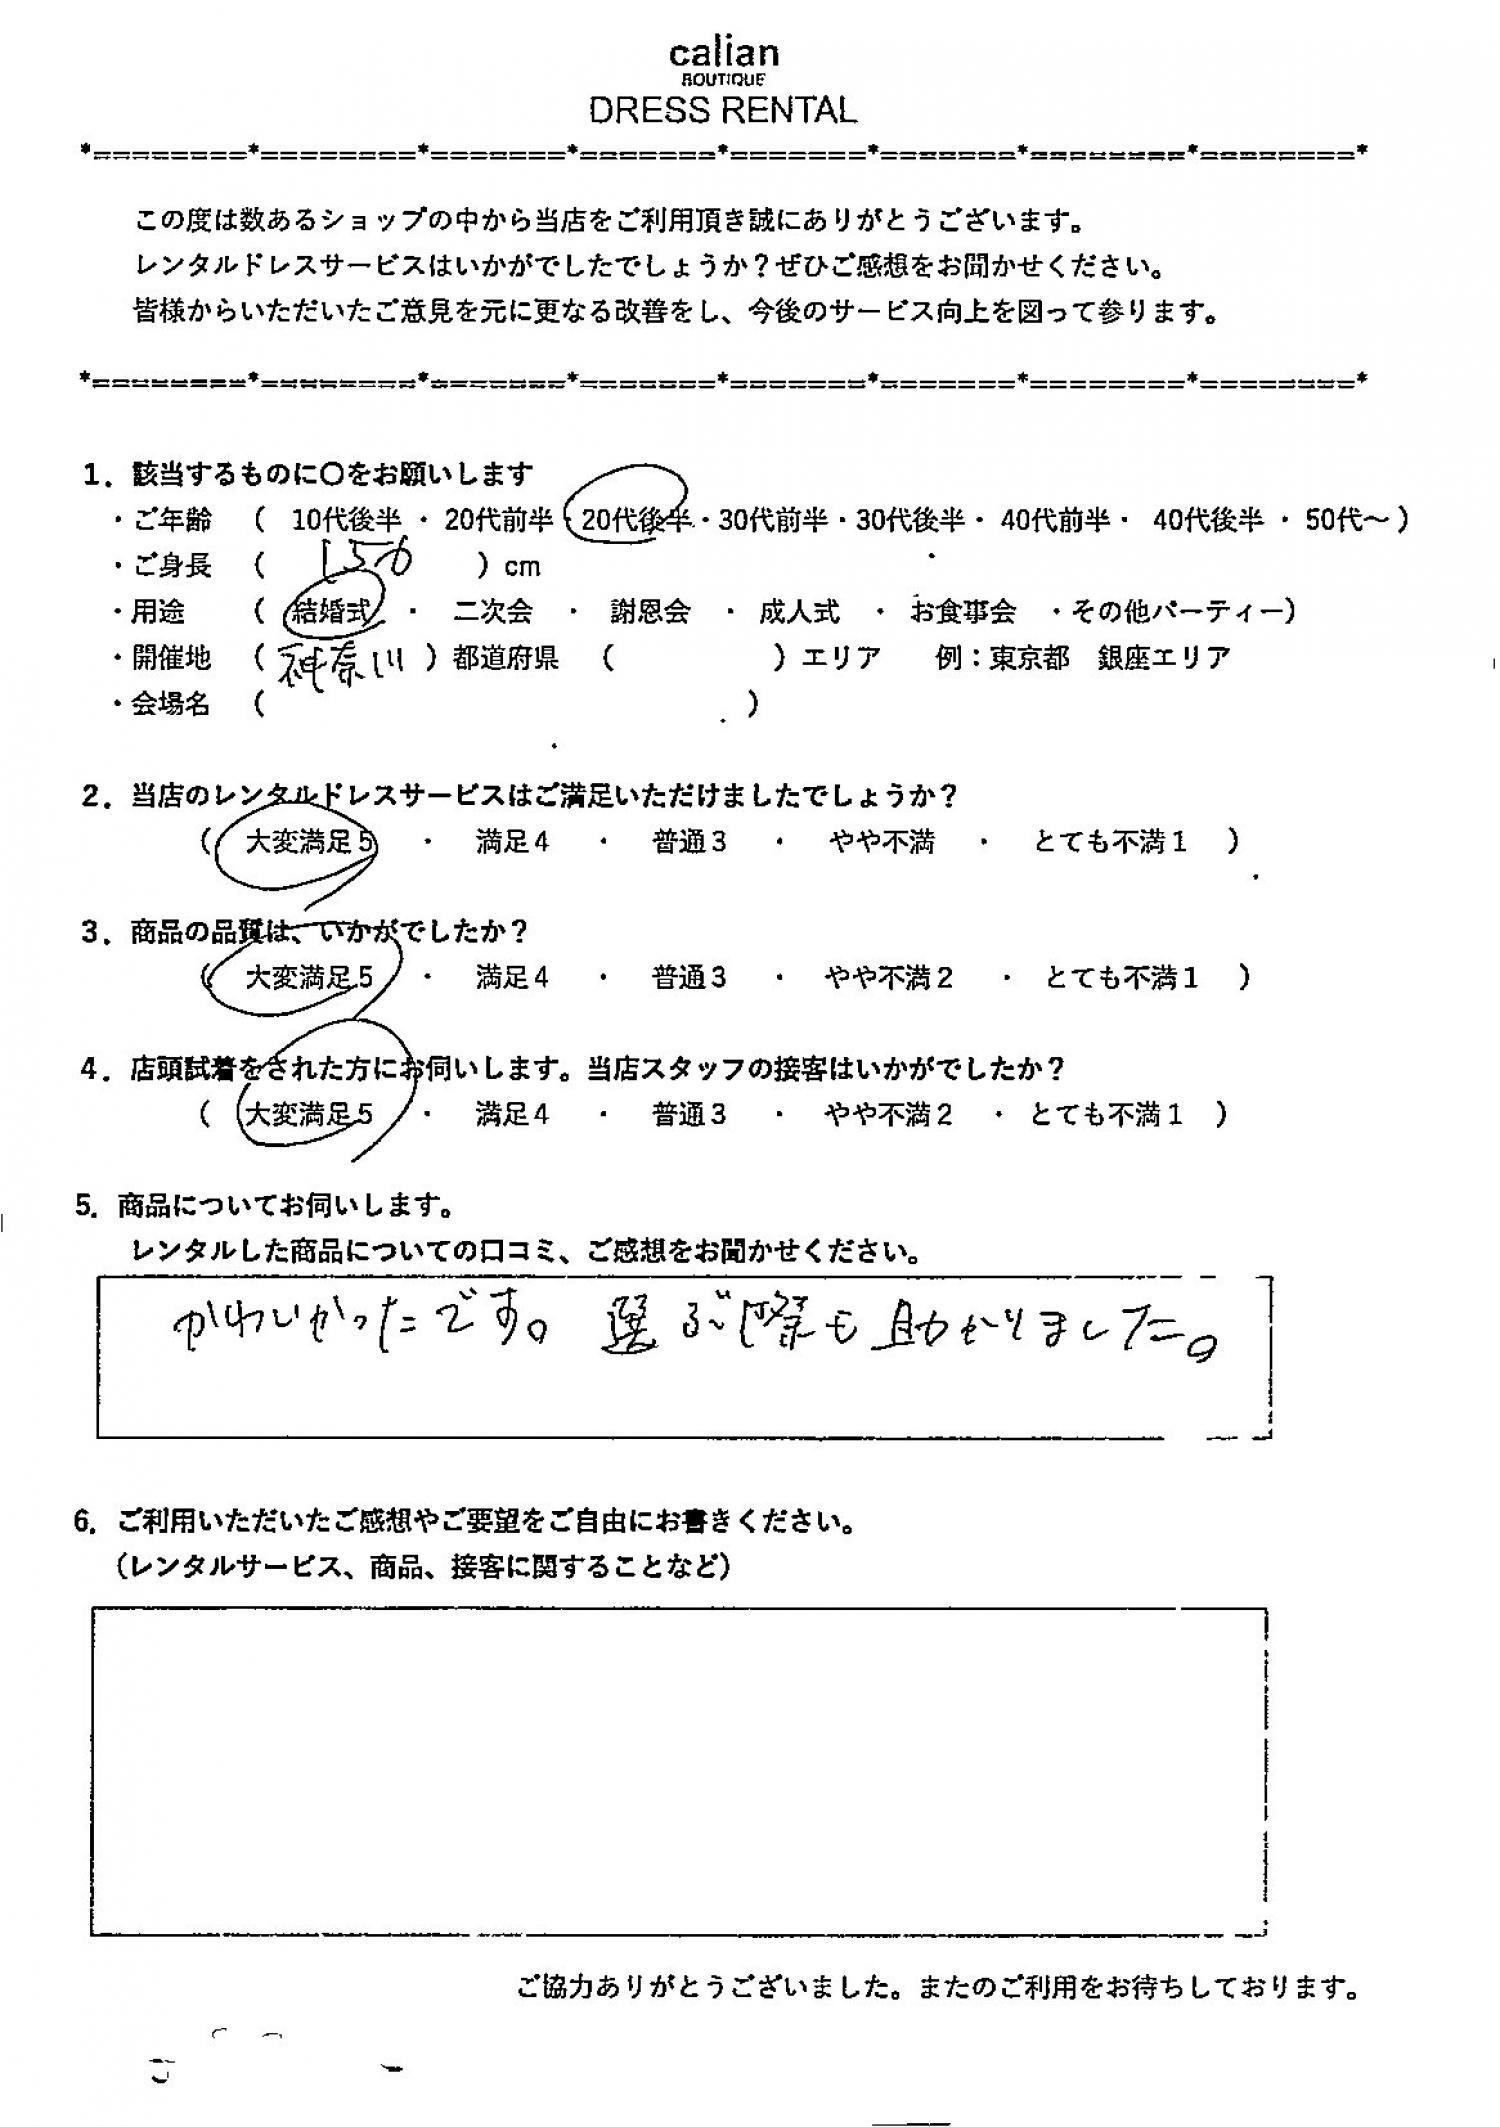 calian
BOUTIQUE
DRESS RENTAL
*========*========*=======*=======*=======*=======*========*========*
この度は数あるショップの中から当店をご利用頂き誠にありがとうございます。
レンタルドレスサービスはいかがでしたでしょうか？ぜひご感想をお聞かせください。
皆様からいただいたご意見を元に更なる改善をし、今後のサービス向上を図って参ります。
*========*========*=======*=======*=======*=======*========*========*
1．該当するものに〇をお願いします
・ご年齢 （ 10代後半 ・ 20代前半・20代後半・30代前半・30代後半・ 40代前半・ 40代後半 ・ 50代～）
・ご身長 （ 156 ）cm
・用途 （ 結婚式 ・ 二次会 ・ 謝恩会 ・ 成人式 ・ お食事会 ・その他パーティー）
・開催地 （ 神奈川 ）都道府県 （ ）エリア 例：東京都 銀座エリア
・会場名 （ ）
2．当店のレンタルドレスサービスはご満足いただけましたでしょうか？
（ 大変満足５ ・ 満足４ ・ 普通３ ・ やや不満 ・ とても不満１ ）
3．商品の品質は、いかがでしたか？
（ 大変満足５ ・ 満足４ ・ 普通３ ・ やや不満２ ・ とても不満１ ）
4．店頭試着をされた方にお伺いします。当店スタッフの接客はいかがでしたか？
（ 大変満足５ ・ 満足４ ・ 普通３ ・ やや不満２ ・ とても不満１ ）
5．商品についてお伺いします。
レンタルした商品についての口コミ、ご感想をお聞かせください。
かわいかったです。 選ぶ際も助かりました。
6．ご利用いただいたご感想やご要望をご自由にお書きください。
（レンタルサービス、商品、接客に関することなど）
ご協力ありがとうございました。またのご利用をお待ちしております。